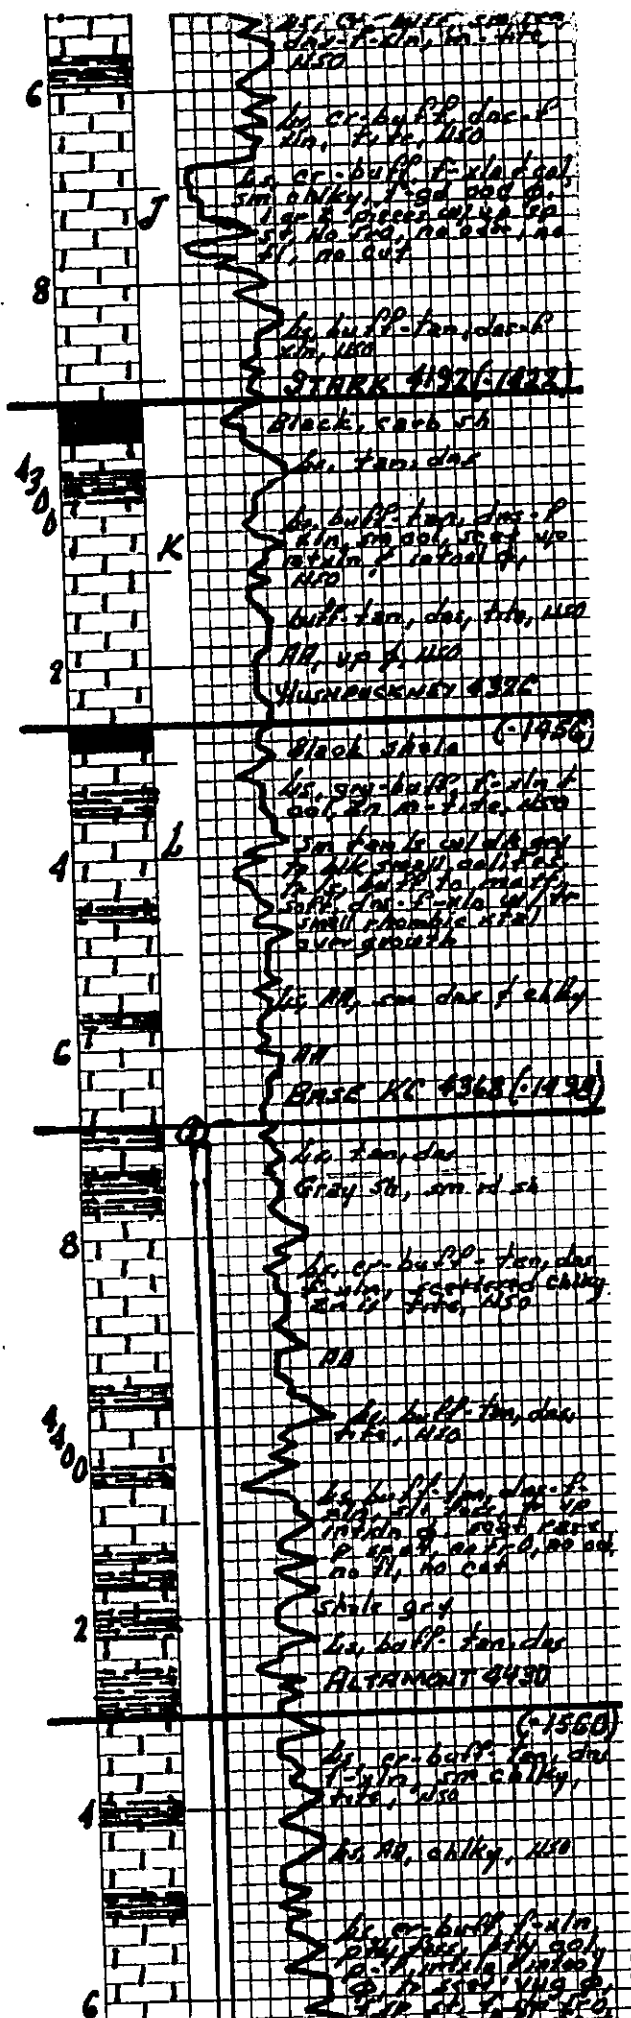 Ls, cr-buff, sm tan,
dns-f-xln, m-tite,
NSO
6
Ls, cr-buff, dns-f
xln, tite, NSO
Ls, cr-buff, f-xln & ool,
sm chlky, f-gd ool ϕ,
J
1 or 2 pieces w/ vp sp
st, no fro, no odor, no
fl, no cut
8
Ls, buff-tan, dns-f
xln, NSO
STARK 4292(-1422)
Black, carb sh
Ls, tan, dns
4300
Ls, buff-tan, dns-f
xln, sm ool, scat vp
K
intxln & intool ϕ,
NSO
buff-tan, dns, tite, NSO
AA, vp ϕ, NSO
2
HUSHPUCKNEY 4326
(-1456)
Black shale
Ls, gry-buff, f-xln &
ool, in m-tite, NSO
L
sm tan ls w/ dk gry
to blk small oolites
4
tr ls, buff to mott,
soft, dns-f-xln w/ tr
small rhombic xtal
over growth
Ls, AA, sm dns & chlky
6
AA
BASE KC 4368(-1498)
1
Ls, tan, dns
Gray sh, sm rd sh
8
Ls, cr-buff-tan, dns
f-xln, scattered chlky
in ls, tite, NSO
AA
Ls, buff-tan, dns,
tite, NSO
4400
Ls, buff-tan, dns-f-
xln, sli foss, tr vp
intxln ϕ, scat rare
p spst, no fro, no od,
no fl, no cut
shale gry
2
Ls, buff-tan, dns
ALTAMONT 4430
(-1560)
Ls, cr-buff-tan, dns
f-xln, sm chlky,
tite, NSO
4
Ls, AA, chlky, NSO
Ls, cr-buff f-xln,
ptly foss, ptly ool,
p-f intxln & intool
ϕ, tr scat vug ϕ,
6